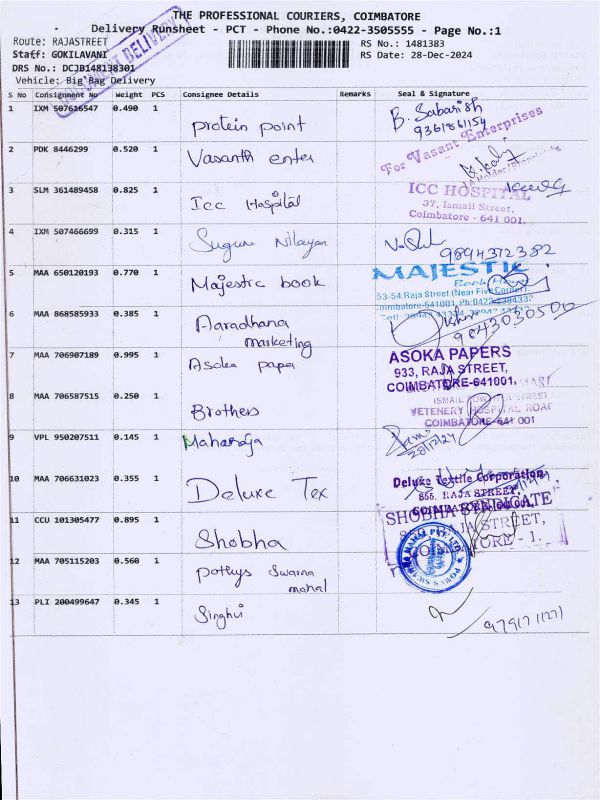 THE PROFESSIONAL COURIERS, COIMBATORE
Delivery Runsheet - PCT - Phone No.:0422-3505555 - Page No.:1
Route: RAJASTREET
RS No.: 1481383
Staff: GOKILAVANI
RS Date: 28-Dec-2024
DRS No.: DCJB148138301
Vehicle: Big Bag Delivery
S No Consignment No Weight PCS Consignee Details Remarks Seal & Signature
1 IXM 507616547 0.490 1 protein point B. Sabarish
9361861154
For Vasant Enterprises
2 PDK 8446299 0.520 1 Vasanth enter
3 SLM 361489458 0.825 1 Icc Hospital
ICC HOSPITAL
37, Ismail Street,
Coimbatore - 641 001.
4 IXM 507466699 0.315 1 Sugune Nilayan
9894372382
5 MAA 650120193 0.770 1 Majestic book
MAJESTIC
Book House
53-54,Raja Street (Near Five Corner)
6 MAA 868585933 0.385 1 Aaradhana
marketing
9843030500
7 MAA 706907189 0.995 1 Asoka paper
ASOKA PAPERS
933, RAJA STREET,
COIMBATORE-641001.
8 MAA 706587515 0.250 1 Brothers
VETENERY HOSPITAL ROAD
COIMBATORE-641 001
9 VPL 950207511 0.145 1 Maharaja
28/12/24
10 MAA 706631023 0.355 1 Deluxe Tex
Deluxe Textile Corporation
RAJA STREET,
11 CCU 101305477 0.895 1 Shobha
SHOBHA SYNDICATE
RAJA STREET,
12 MAA 705115203 0.560 1 pothys Swarna
mahal
13 PLI 200499647 0.345 1 Singhvi